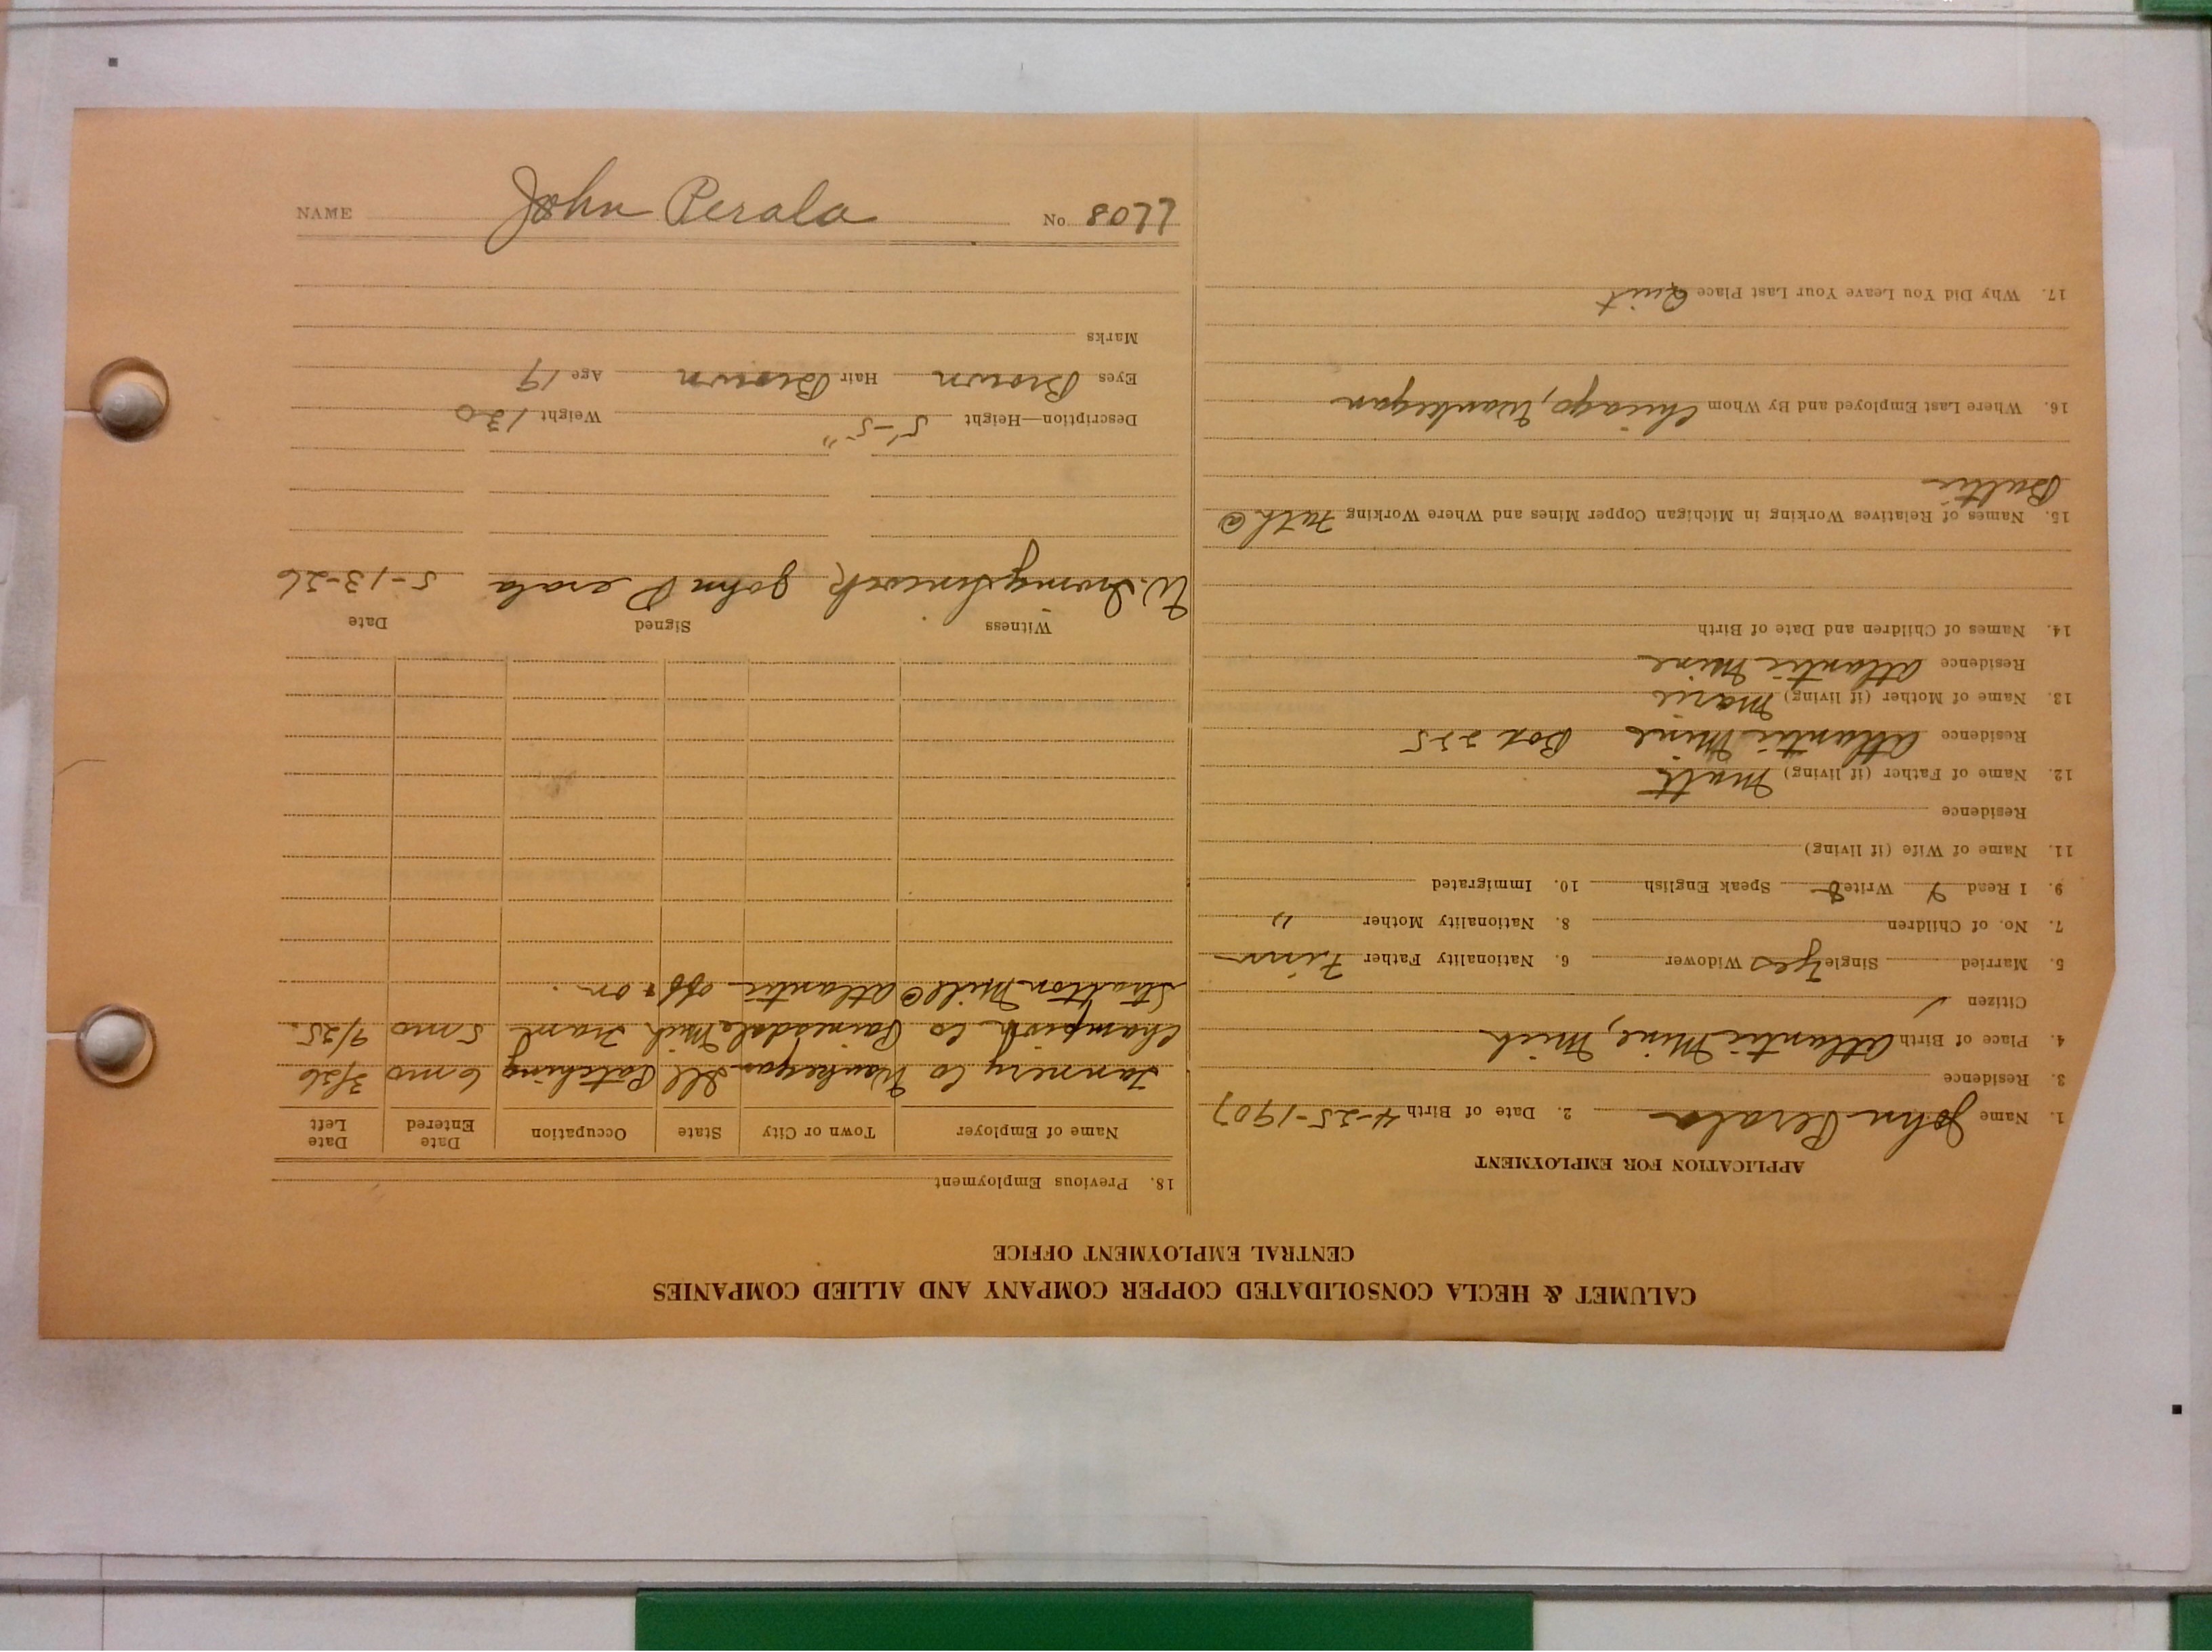 CALUMET & HECLA CONSOLIDATED COPPER COMPANY AND ALLIED COMPANIES
CENTRAL EMPLOYMENT OFFICE
APPLICATION FOR EMPLOYMENT
1. Name John Perala 2. Date of Birth 4-25-1907
3. Residence
4. Place of Birth Atlantic Mine, Mich
Citizen ✓
5. Married Single Yes Widower 6. Nationality Father Finn
7. No. of Children 8. Nationality Mother "
9. I Read Write Speak English 10. Immigrated
11. Name of Wife (if living)
Residence
12. Name of Father (if living) Matt
Residence Atlantic Mine Box 225
13. Name of Mother (if living) Marie
Residence Atlantic Mine
14. Names of Children and Date of Birth
15. Names of Relatives Working in Michigan Copper Mines and Where Working Fath @
Baltic
16. Where Last Employed and By Whom Chicago, Waukegan
17. Why Did You Leave Your Last Place Quit
18. Previous Employment
Name of Employer Town or City State Occupation Date Entered Date Left
Tannery Co Waukegan Ill Patching 6 mo 3/26
Champion Co Painesdale Mich Tram 5 mo 9/25.
Stratton Mill @ Atlantic off & on.
Witness Signed Date
John Perala 5-13-26
Description—Height 5'-5" Weight 130
Eyes Brown Hair Brown Age 19
Marks
NAME John Perala No 8077